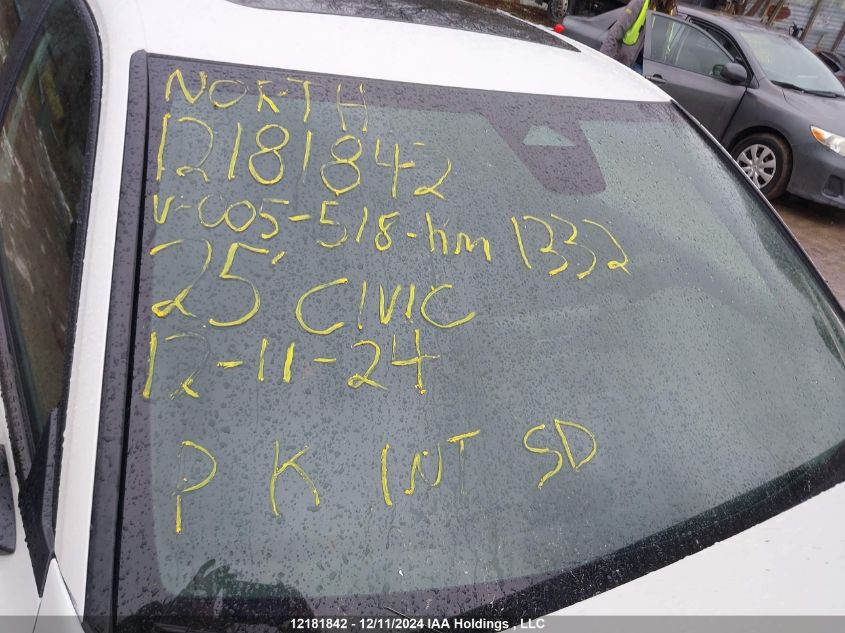 NORTH
12181842
V-005-518-hm 1332
25' CIVIC
12-11-24
P K INT SD
12181842 - 12/11/2024 IAA Holdings, LLC